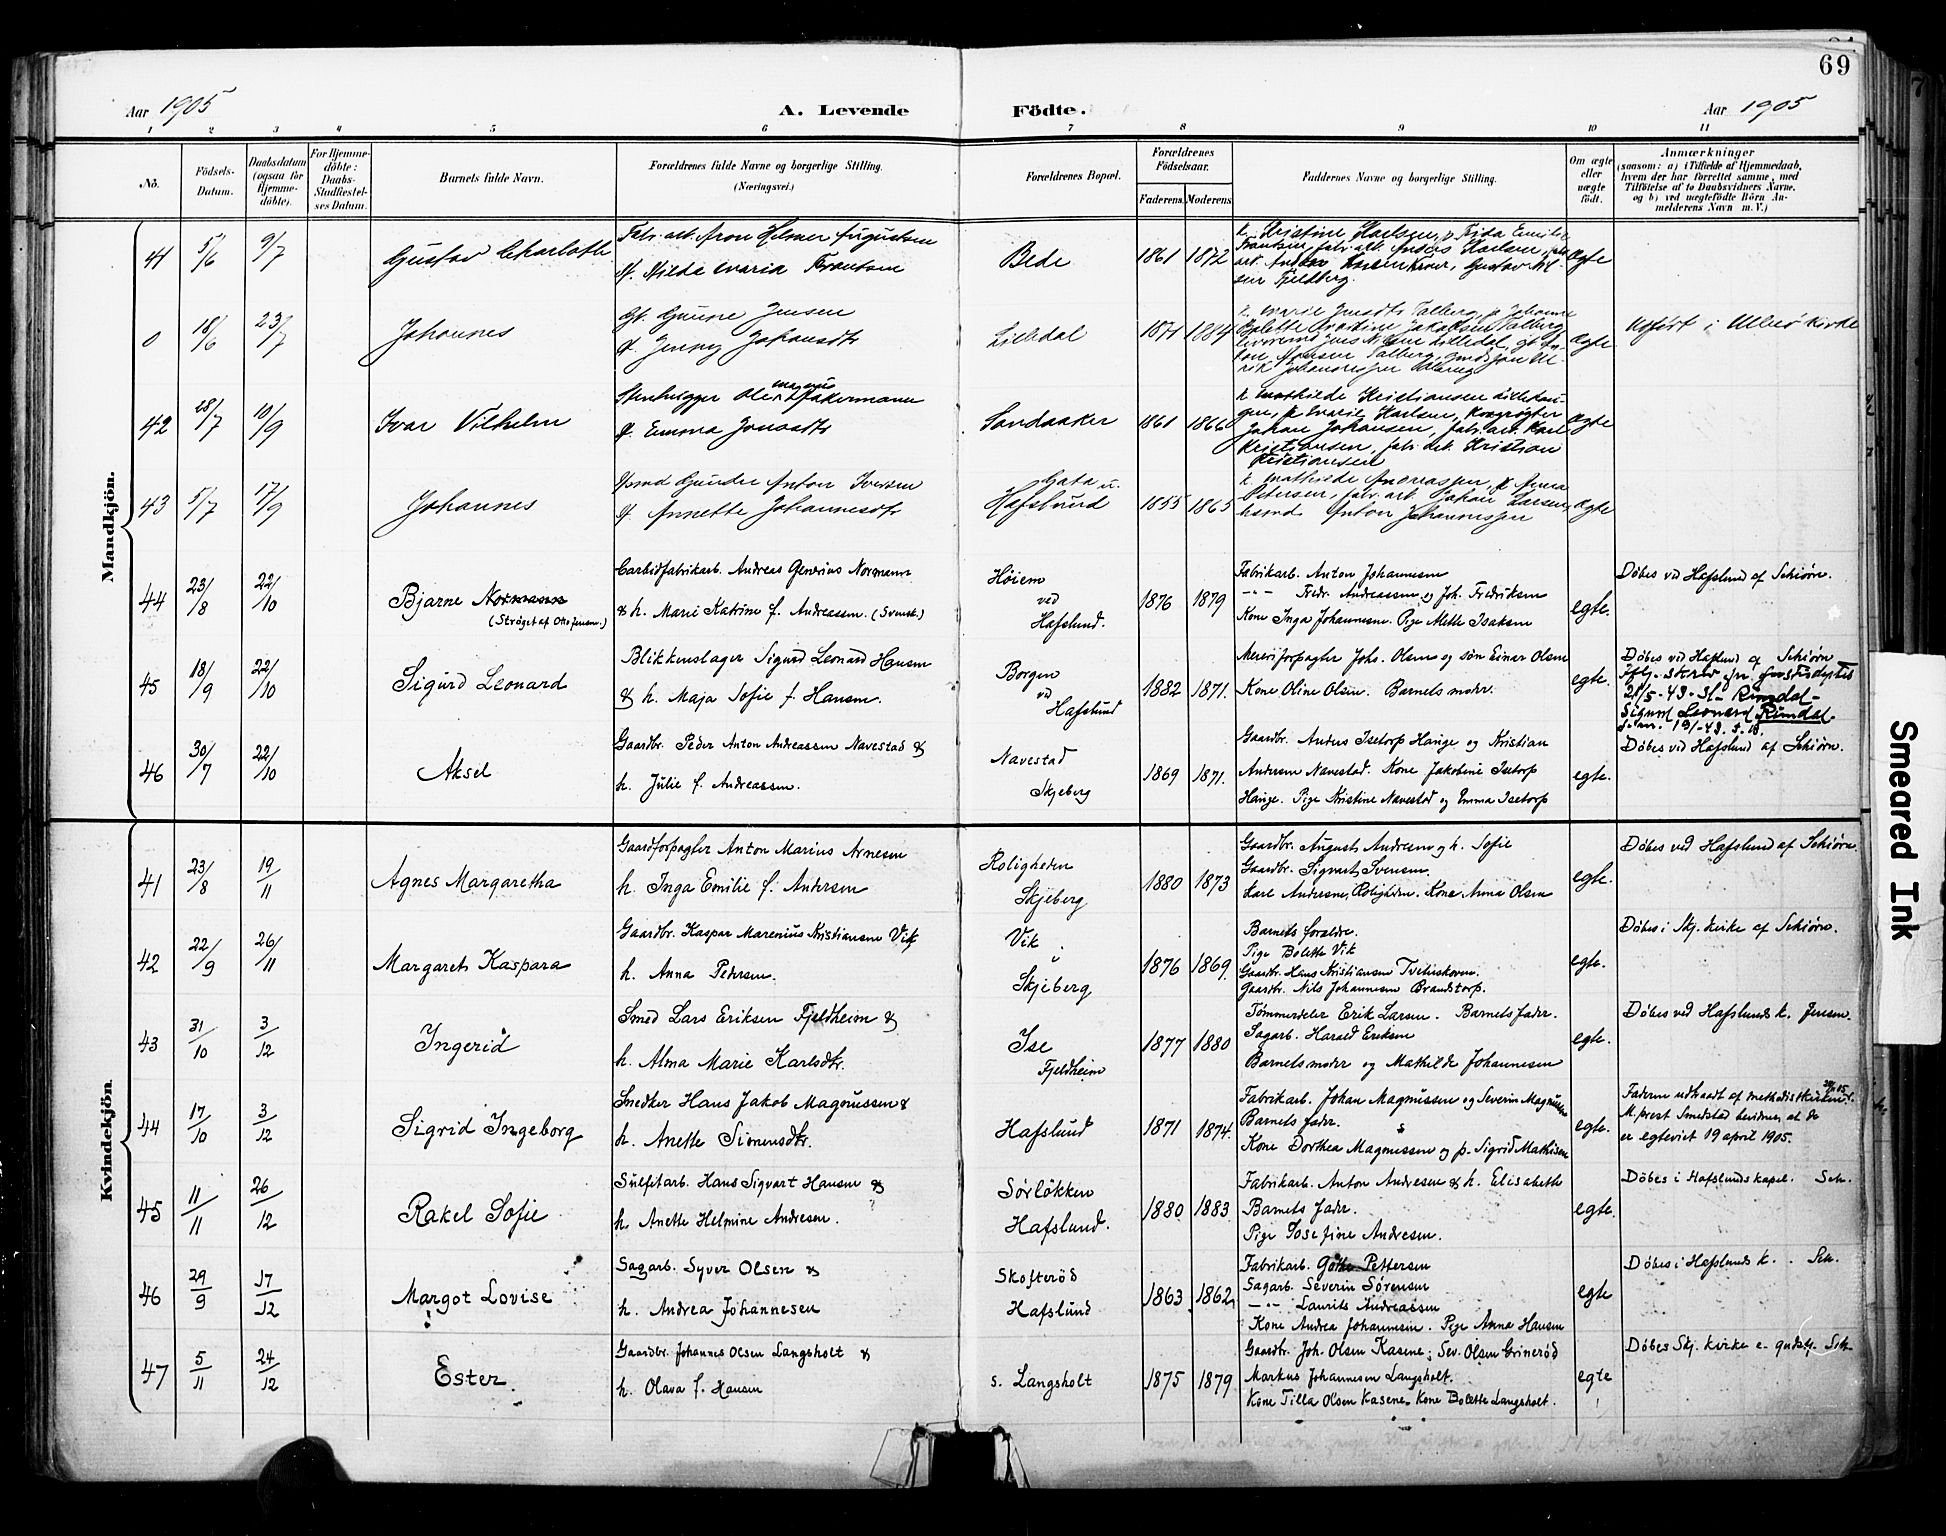 69
Aar 1905
A. Levende Födte.
Aar 1905
1 2 3 4 5 6 7 8 9 10 11
No.
Födsels-Datum.
Daabsdatum (ogsaa for Hjemme-döbte).
For Hjemme-döbte: Daabs-Stadfæstel-ses Datum.
Barnets fulde Navn.
Forældrenes fulde Navne og borgerlige Stilling. (Næringsvei.)
Forældrenes Bopæl.
Forældrenes Födselsaar.
Faderens. Moderens.
Faddernes Navne og borgerlige Stilling.
Om ægte eller uægte födt.
Anmærkninger
(saasom: a) i Tilfælde af Hjemmedaab, hvem der har forrettet samme, med Tilföielse af to Daabsvidners Navne, og b) ved uægtefödte Börn An-melderens Navn m. V.)
Mandkjön.
41 5/6 9/7 Gustav Charloth
Fabr. arb. Aron Hilmer Augustsen
f. Hilda Maria Frantsen
Bede 1861 1872
k. Kristine Karlsen, p. Frida Emilie
Frantsen, fabr. arb. Anders Karlsen,
Gustav
Fjeldberg.
Ægte
0 18/6 23/7 Johannes
Gunne Jensen
f. Jenny Johansdtr
Lilledal 1871 1884
Ægte
Udfört i Ullerö Kirke
42 28/7 10/9 Ivar Vilhelm
Stenhugger Ole Magnus Akermann
f. Emma Jonasdtr
Sandaaker 1861 1866
k. Mathilde Kristiansen
p. Marie Karlsen, Røgter
Johan Johansen, fabr. arb. Karl
Kristiansen, fabr. arb. Kristian
Kristiansen
Ægte
43 5/7 17/9 Johannes
Smed Gunder Anton Iversen
f. Annette Johannesdtr
Gata u.
Hafslund 1855 1865
k. Mathilde Andreassen, p. Anna
Petersen, fabr. arb. Johan Larsen,
Anton Johannessen
Ægte
44 23/8 22/10 Bjarne Normann
(Strøget af Otto Jensen.)
Carbidfabrikarb. Andreas Normann
& h. Marie Katrine f. Andreassen. (Svensk.)
Høiem ved Hafslund. 1876 1879
Fabrikarb. Anton Johannesen
–"– Fredr. Andreassen og Joh. Fredriksen
Kone Inga Johannesen. Pige Mette Isaksen
egte.
Döbes ved Hafslund af Schiørn.
45 18/9 22/10 Sigurd Leonard
Blikkenslager Sigurd Leonard Hansen
& h. Maja Sofie f. Hansen.
Borgen ved Hafslund 1882 1871.
Meieriforpagter Johs. Olsen og søn Einar Olsen
Kone Oline Olsen. Barnets moder.
egte.
Döbes ved Hafslund af Schiørn
Rimdal
Sigurd Leonard Rimdal.
46 30/7 22/10 Aksel
Gaardbr. Peder Anton Andreassen Navestad &
h. Julie f. Andreassen.
Navestad
Skjeberg 1869 1871.
Gaardbr. Anders Isetorp Hauge og Kristian
Andersen Navestad. Kone Jakobine Isetorp
Hauge. Pige Kristine Navestad og Emma Isetorp
egte.
Döbes ved Hafslund af Schiørn.
Kvindekjön.
41 23/8 19/11 Agnes Margaretha
Gaardforpagter Anton Marius Arnesen
h. Inga Emilie f. Andersen
Roligheden
Skjeberg 1880 1873
Gaardbr. August Andresen og h. Sofie
Gaardbr. Sigvart Svensen.
Karl Andersen, Roligheden. Kone Anna Olsen
egte.
Döbes ved Hafslund af Schiørn.
42 22/9 26/11 Margareth Kaspara
Gaardbr. Kaspar Marenius Kristiansen Vik
h. Anna Pedersen.
Vik
i
Skjeberg 1876 1869.
Barnets forældre.
Pige Bolette Vik
Gaardbr. Hans Kristiansen Tveteskoven.
Gaardbr. Nils Johannesen Brandstorp.
egte.
Döbes i Skj. kirke af Schiørn.
43 31/10 3/12 Ingerid
Smed Lars Eriksen Fjeldheim &
h. Alma Marie Karlsdtr.
Ise
Fjeldheim 1877 1880
Tømmerdeler Erik Larsen. Barnets fader.
Sagarb. Harald Eriksen
Barnets moder og Mathilde Johannesen
egte.
Döbes ved Hafslunds k. Jensen.
44 17/10 3/12 Sigrid Ingeborg
Snedker Hans Jakob Magnussen &
h. Anette Simensdtr.
Hafslund 1871 1874.
Fabrikarb. Johan Magnussen og Severin Magnussen
Barnets fader.
Kone Dorthea Magnussen og p. Sigrid Mathisen
egte.
Faderen udtraadt af methodistkirken
M. prest Smedstad bevidner, at de
er egteviet 19 april 1905.
45 11/11 26/12 Rakel Sofie
Sulfitarb. Hans Sigvart Hansen &
h. Anette Helmine Andresen.
Sørløkken
Hafslund. 1880 1883
Fabrikarb. Anton Andresen & h. Elisabeth
Barnets fader.
Pige Josefine Andresen.
egte.
Döbes i Hafslunds kapel. Sch.
46 29/9 17/12 Margot Lovise
Sagarb. Syver Olsen &
h. Andrea Johannesen
Skofteröd
Hafslund 1863 1862
Fabrikarb. Göthe Pettersen
Sagarb. Severin Sörensen
–"– Laurits Andreassen
Kone Andrea Johannesen. Pige Anna Hansen
egte
Döbes i Hafslunds k. Sch.
47 5/11 24/12 Ester.
Gaardbr. Johannes Olsen Langsholt &
h. Olava f. Hansen
s. Langsholt 1875 1879
Gaardbr. Joh. Olsen Kasene; Sev. Olsen Grineröd
Markus Johannesen Langsholt.
Kone Tilla Olsen Kasene. Kone Bolette Langsholt.
egte
Döbes Skj. kirke e. gudstj. Sch.
Smeared Ink